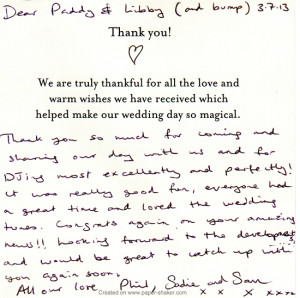 Dear Paddy & Libby (and bump) 3.7.13
Thank you!
We are truly thankful for all the love and
warm wishes we have received which
helped make our wedding day so magical.
Thank you so much for coming and
sharing our day with us and for
DJing most excellently and perfectly!
It was really good fun, everyone had
a great time and loved the wedding
tunes. Congrats again on your amazing
news!! Looking forward to the developments
and would be great to catch up with
you again soon.
All our love Phil, Sadie and Sam
x x x xoxo
Created on www.paper-shaker.com